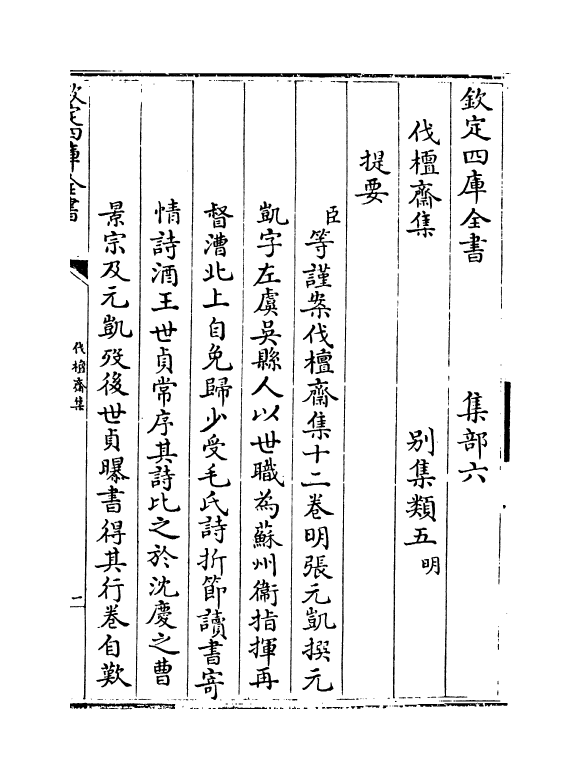 欽定四庫全書　集部六
伐檀齋集　别集類五明
提要
臣等謹案伐檀齋集十二卷明張元凱撰元
凱字左虞吳縣人以世職為蘇州衞指揮再
督漕北上自免歸少受毛氏詩折節讀書寄
情詩酒王世貞常序其詩比之於沈慶之曹
景宗及元凱歿後世貞曝書得其行卷自歎
欽定四庫全書
伐檀齋集
二